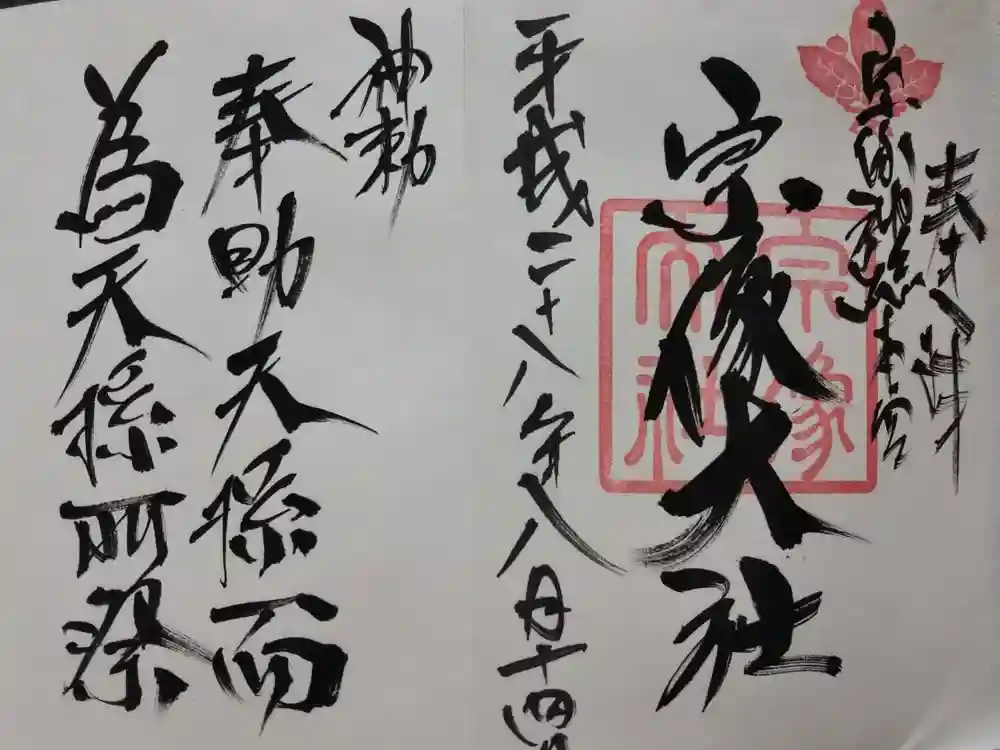 奉拝
宗像大社
宗像
大社
平成二十八年八月十四日
神勅
奉助天孫而
為天孫所祭